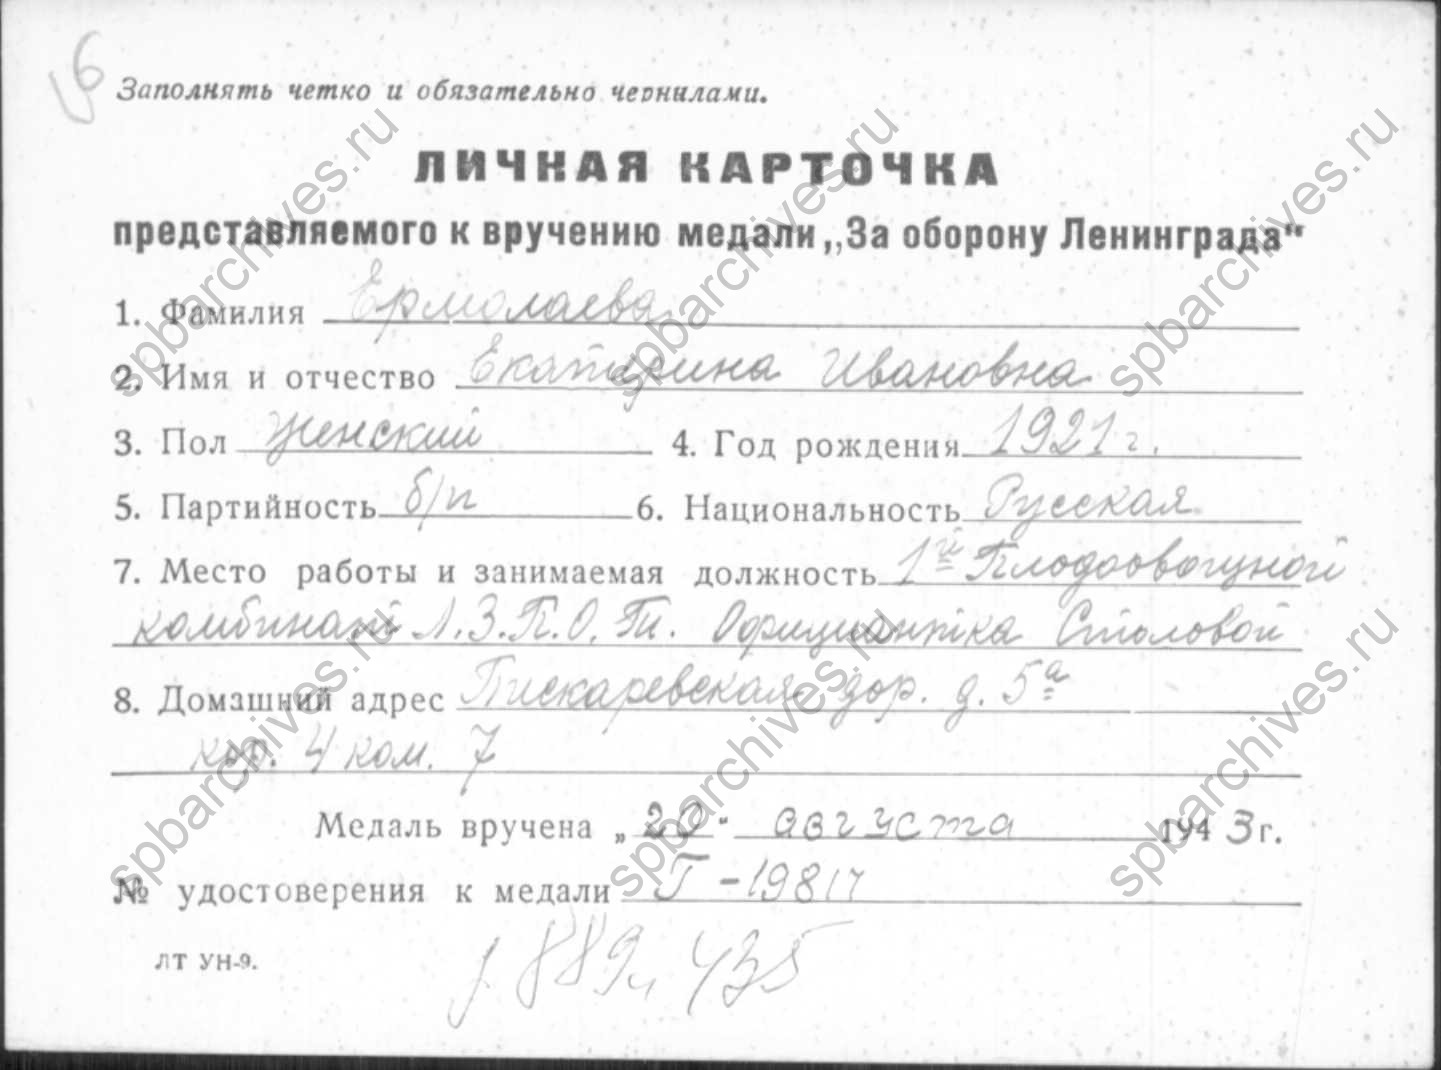 6
Заполнять четко и обязательно чернилами.
ЛИЧНАЯ КАРТОЧКА
представляемого к вручению медали „За оборону Ленинграда“
1. Фамилия Ермолаева
2. Имя и отчество Екатерина Ивановна
3. Пол Женский 4. Год рождения 1921 г.
5. Партийность б/п 6. Национальность Русская
7. Место работы и занимаемая должность 1й Плодоовощной
комбинат Л.З.П.О.Т. Официантка Столовой
8. Домашний адрес Пискаревская дор. д. 5а
кор. 4 ком. 7
Медаль вручена „20“ августа 1943 г.
№ удостоверения к медали Г-19817
ЛТ УН-9.
spbarchives.ru
spbarchives.ru
spbarchives.ru
spbarchives.ru
spbarchives.ru
spbarchives.ru